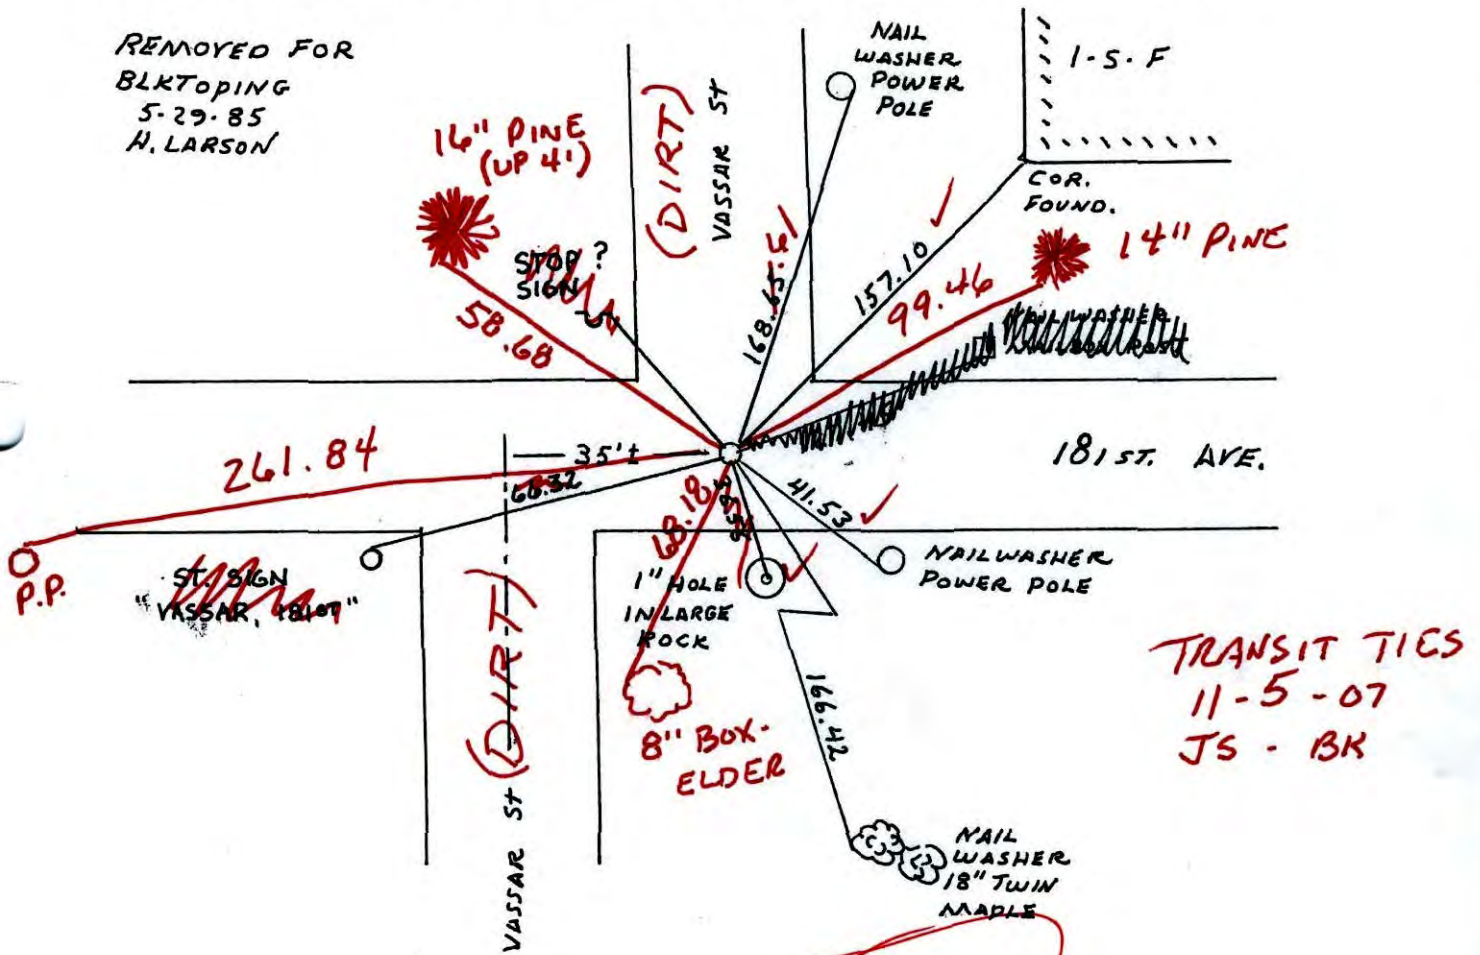 REMOVED FOR
BLKTOPING
5-29-85
H. LARSON
16" PINE
(UP 4')
(DIRT)
VASSAR St
NAIL
WASHER
POWER
POLE
1-S.F
COR.
FOUND.
14" PINE
STOP ?
SIGN
58.68
168.65
.61
157.10
99.46
NAIL WASHER
261.84
35'±
68.32
181ST. AVE.
41.53
68.18
P.P.
ST. SIGN
"VASSAR, 181ST"
1" HOLE
IN LARGE
ROCK
NAILWASHER
POWER POLE
(DIRT)
VASSAR St
8" BOX-
ELDER
166.42
TRANSIT TIES
11-5-07
JS - BK
NAIL
WASHER
18" TWIN
MAPLE